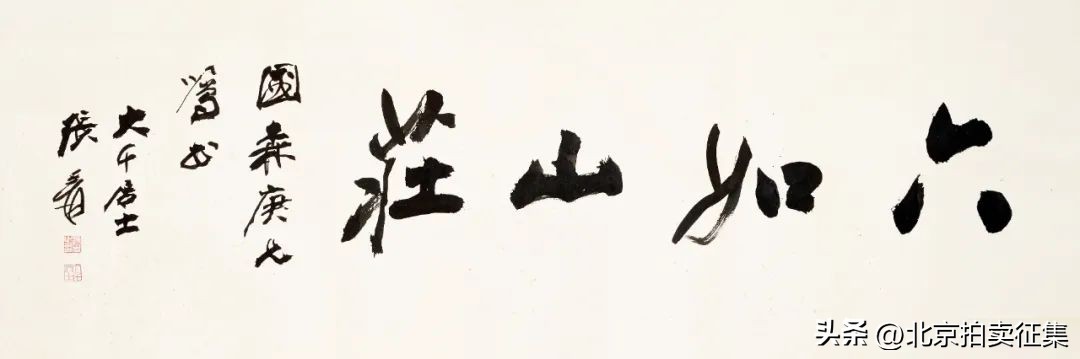 六如山莊
國森庚兄
屬書
大千居士
張爰
头条 @北京拍卖征集